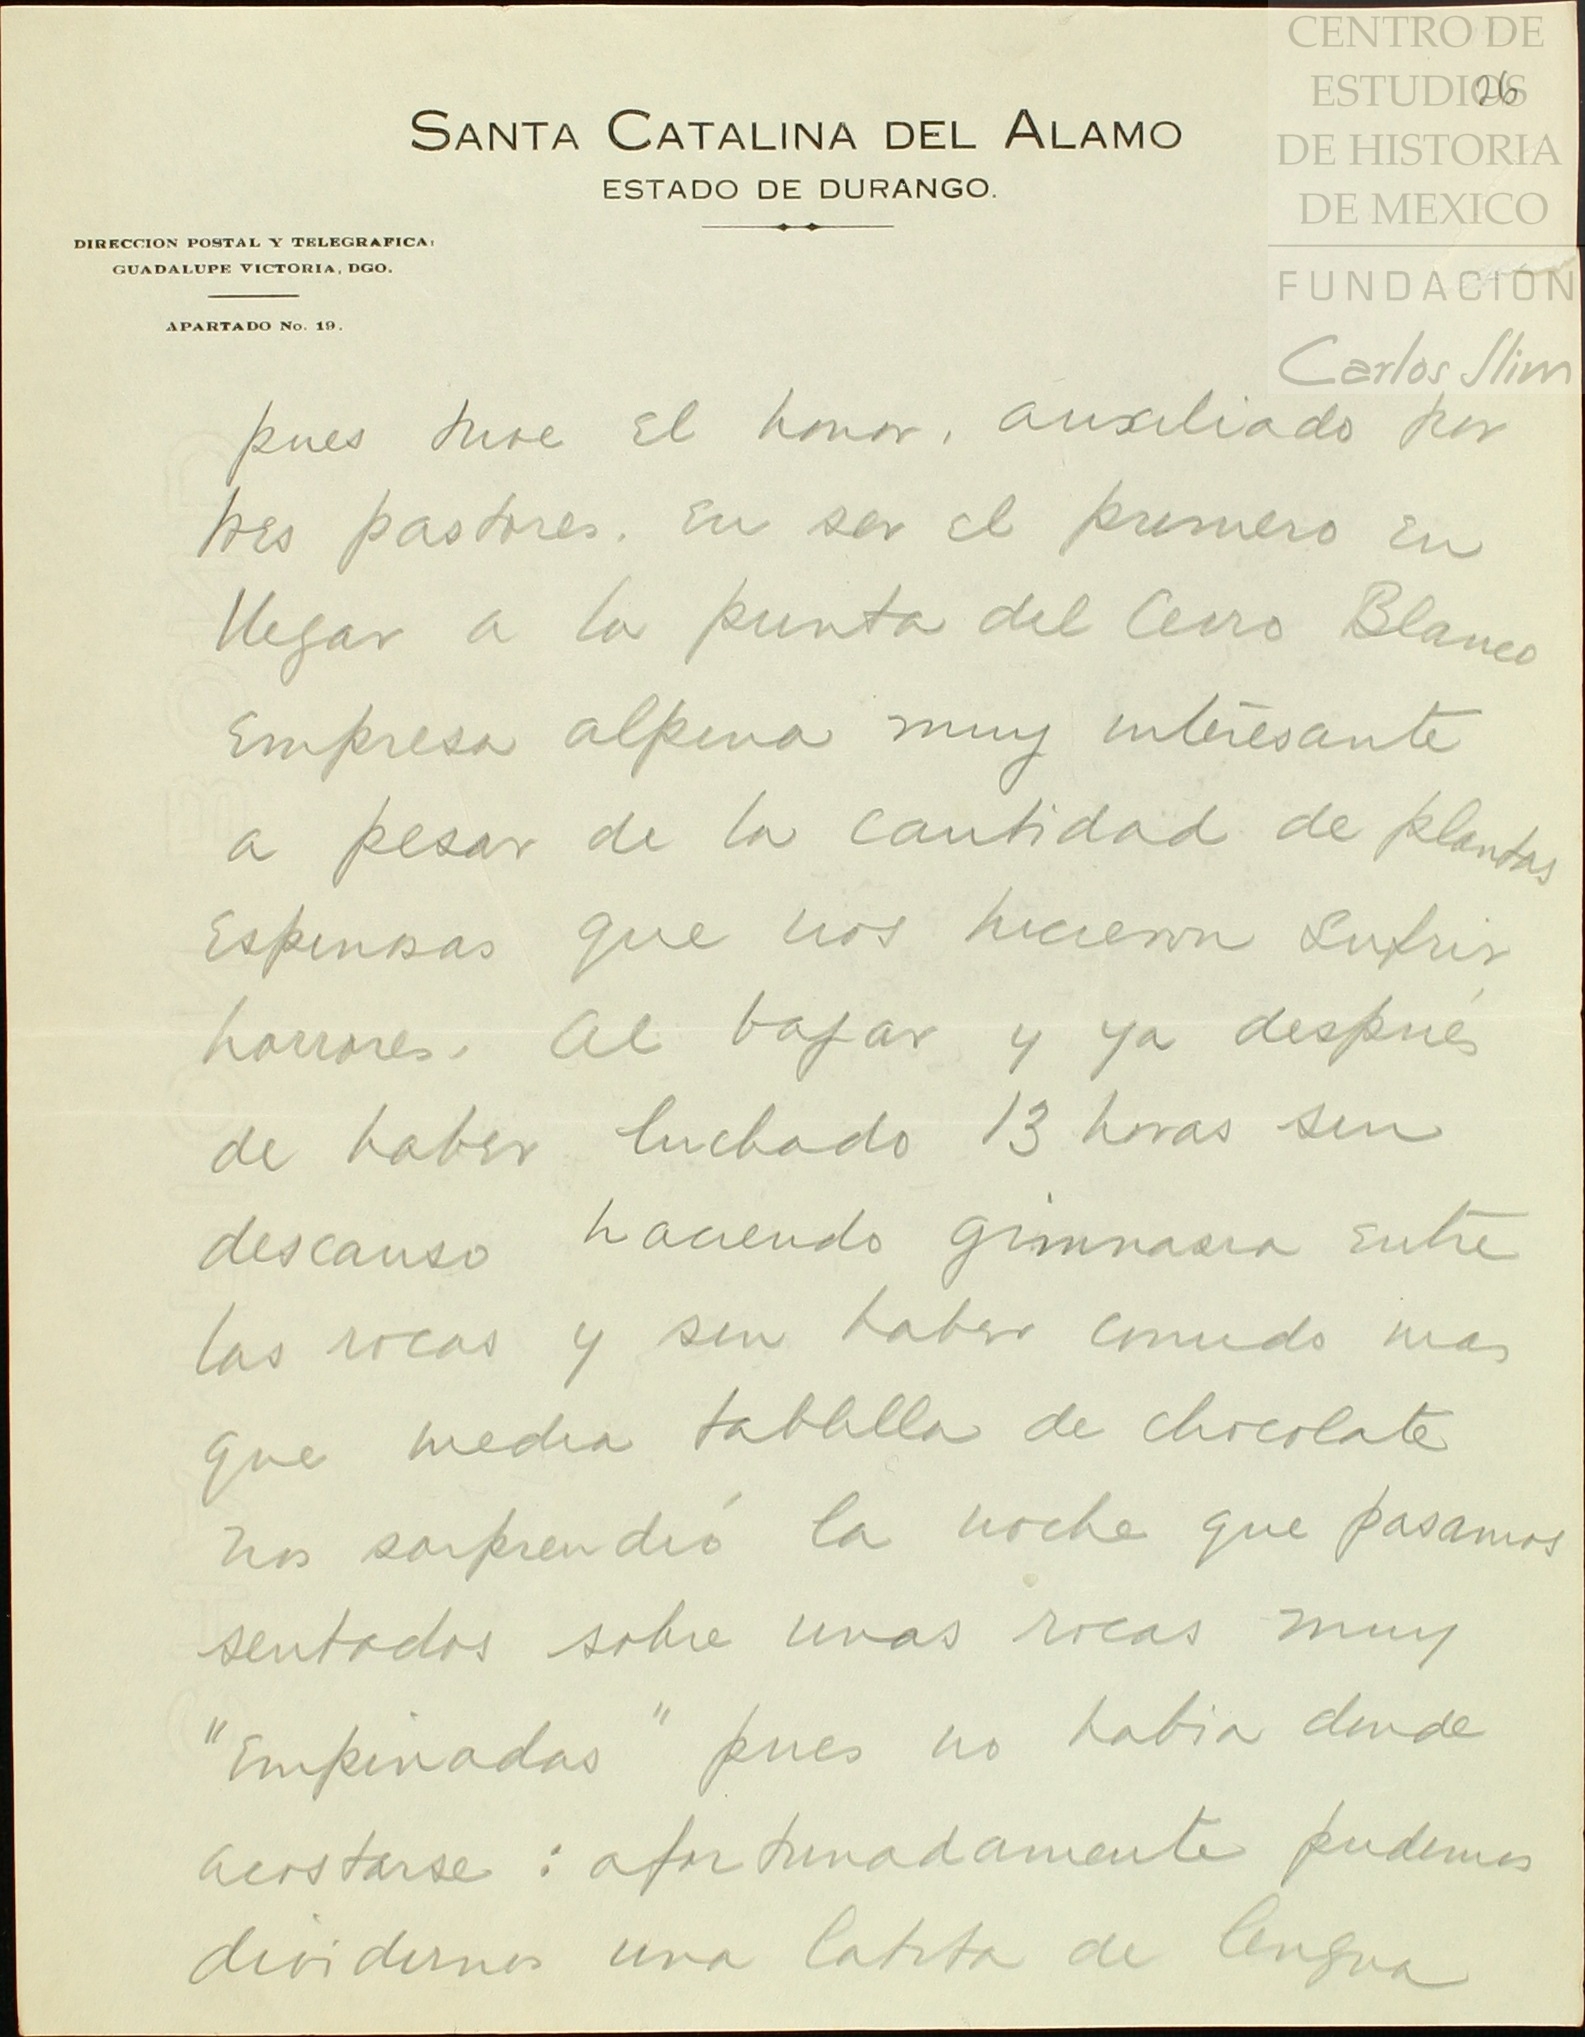 CENTRO DE
ESTUDIOS
26
DE HISTORIA
DE MEXICO
FUNDACIÓN
Carlos Slim
SANTA CATALINA DEL ALAMO
ESTADO DE DURANGO.
DIRECCION POSTAL Y TELEGRAFICA:
GUADALUPE VICTORIA, DGO.
APARTADO No. 19.
pues tuve el honor, auxiliado por
tres pastores. en ser el primero en
llegar a la punta del Cerro Blanco
empresa alpina muy interesante
a pesar de la cantidad de plantas
espinosas que nos hicieron sufrir
horrores. Al bajar y ya después
de haber luchado 13 horas sin
descanso haciendo gimnasia entre
las rocas y sin haber comido mas
que media tablilla de chocolate
nos sorprendió la noche que pasamos
sentados sobre unas rocas muy
"empinadas" pues no habia donde
acostarse : afortunadamente pudimos
dividirnos una latita de lengua